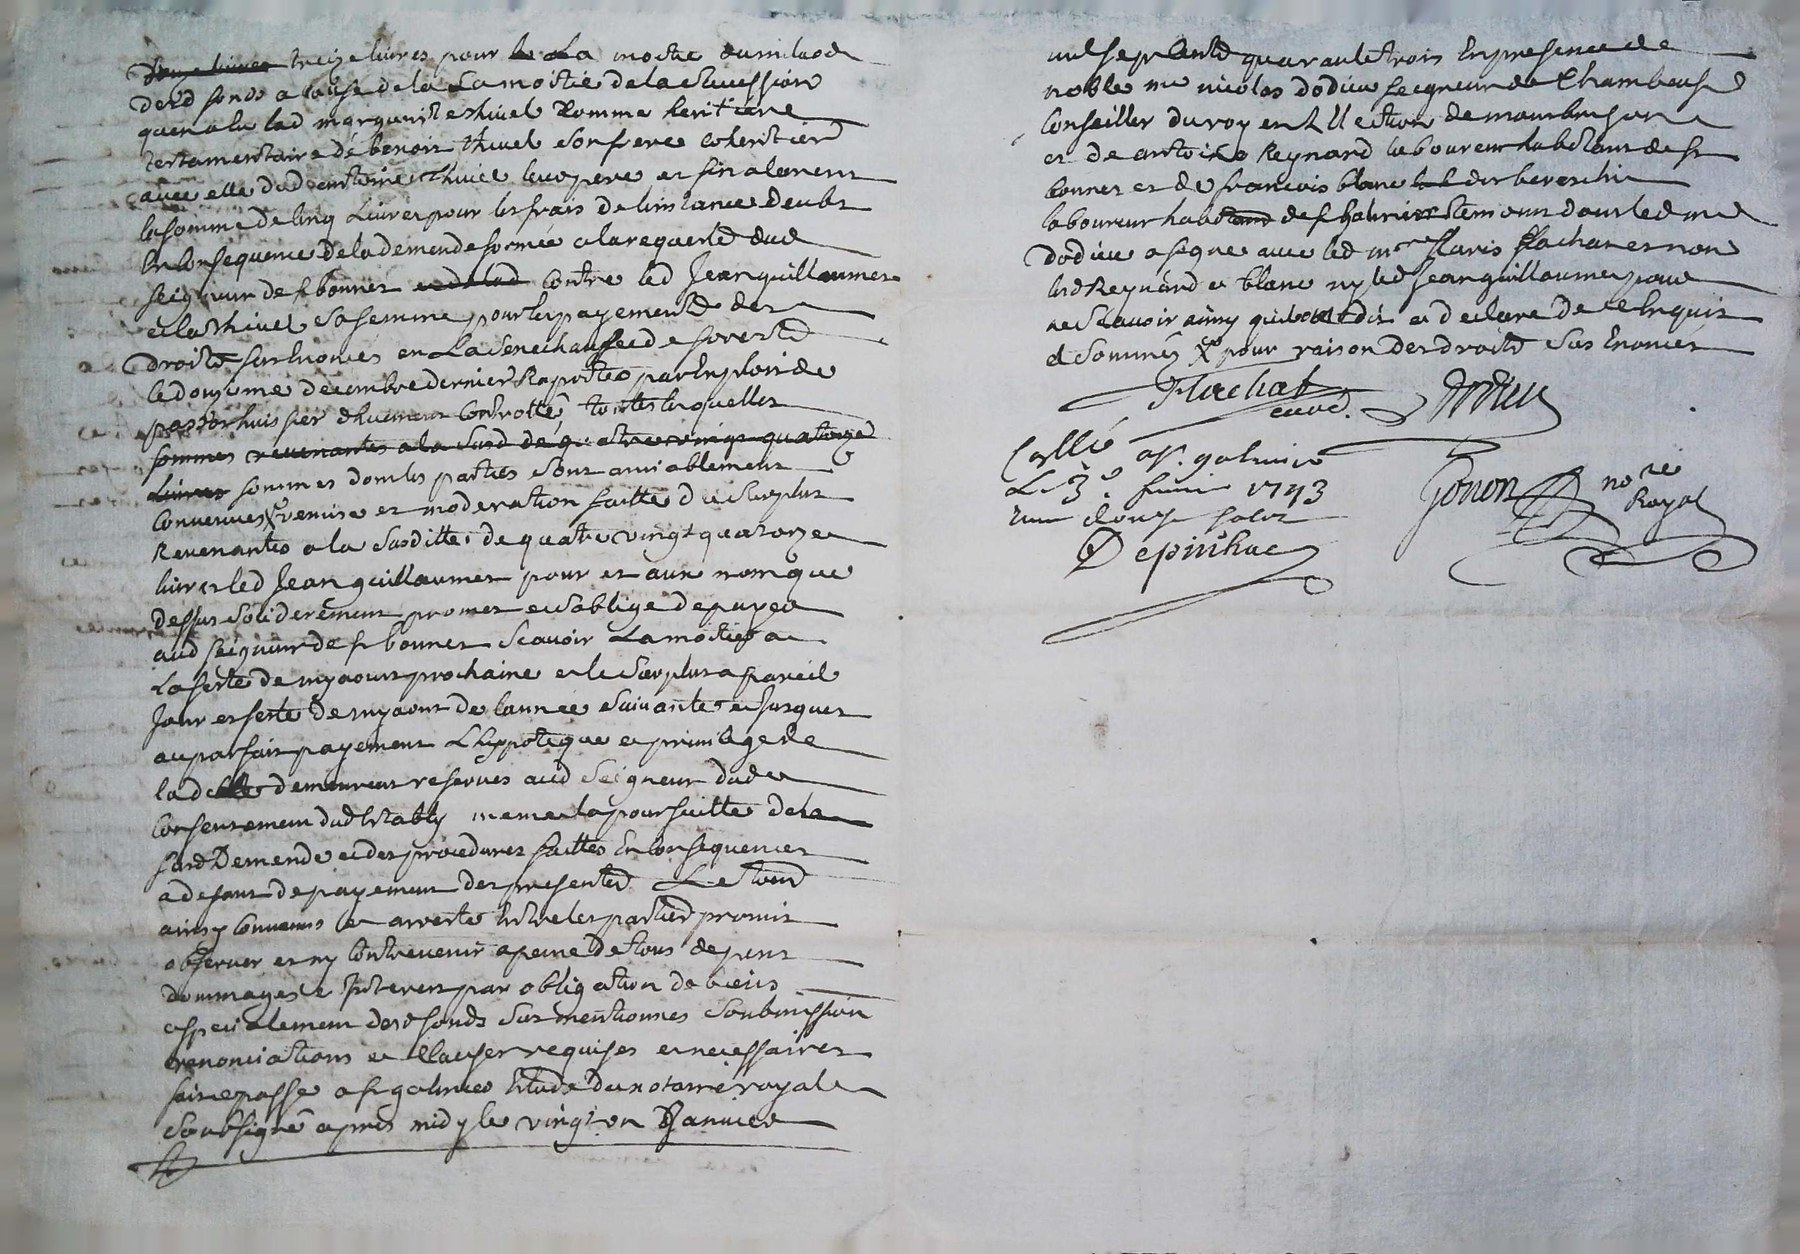 treize livres pour la moitié du milaod
desd fonds a cause de la La moitié de la sucession
quen a lu lad marguerite thivel comme heritiere
testamentaire de benoit thivel son frere coheritier
avec elle dud antoine thivel leur pere et finalement
la somme de cinq Livres pour les frais de linstance deubt
En Consequence de la demende formée a la requerte dud
seigneur de st bonnet contre led Jean guillaumet
et la thivel sa femme pour le payement des
Droits sus Enonces en La Senechaussée de forest
le douzieme decembre dernier Raportée par Exploit de
huissier Controllé, toutes lesquelles
sommes revenantes a la susd de quatre vingt quatorze
livres sommes dont les parties sont amiablement
Convenues remise et moderation faitte du surplus
Revenantes a la susditte de quatre vingt quatorze
livres led Jean guillaumet pour et aux noms que
dessus soliderement promet et soblige de payer
aud seigneur de st bonnet scavoir La moitié a
La feste de my aoust prochaine et le surplus a pareil
Jour et feste de my aoust de lannée suivante et Jusques
au parfait payement Lhyppoteque et privilege de
la demeurent reserves aud seigneur du
Consentement dud Estably meme la poursuitte de la
susd Demende et des procedures faittes En Consequences
a defaut de payement des presentes Le tout
ainsy Convenus et arresté Entre les parties promis
observer et ny Contrevenir a peine de tous depens
dommages et Interest par obligation de biens
especialement desd fonds sus mentionnes soubmission
renonciations et Clauses requises et necessaires
fait et passé a st galmier Etude du notaire royal
soubsigné apres midy le vingt un Janvier
mil sept Cents quarante trois En presence de
noble me nicolas dodieu seigneur de Chambeuf
Conseiller du roy en LEllection de montbrison
et de antoine Reynard laboureur habitant de st
bonnet et de francois blanc
laboureur habitant de st galmier temoins dont led me
Dodieu a signé avec led me flachat et non
lesd Reynard et blanc ny led Jean guillaumet pour
ne scavoir ainsy quil ont dit et declaré de ce Enquis
et sommés pour raison des droits sus Enonces
Flachat
Dodieu
Collé a st. galmier
Le 3e. 1743
Gonon nore
Royal
Depinhac